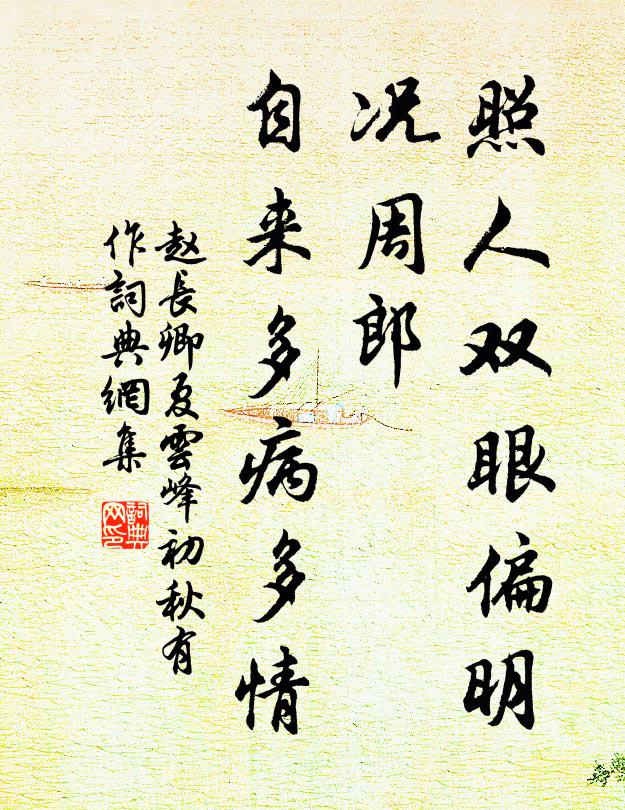 照人双眼偏明
况周郎
自来多病多情
赵長卿夏雲峰初秋有
作詞典網集
詞典网印